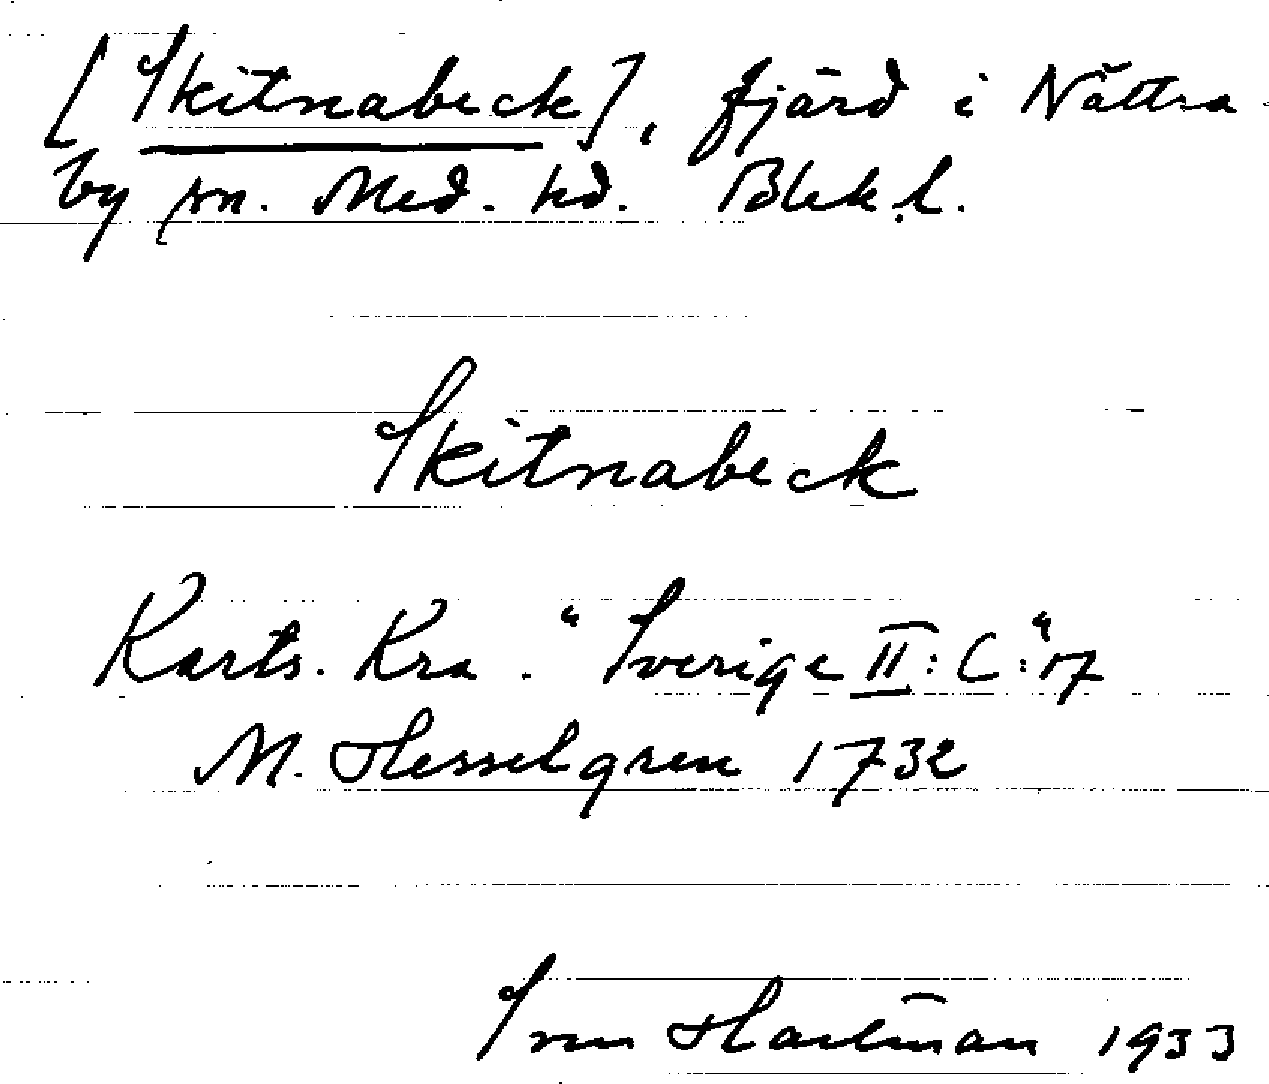 [Skitnabeck], fjärd i Nättra-
by sn. Med. hd. Blek.l.
Skitnabeck
Karts. Kra. "Sverige II: C:17"
M. Hesselgren 1732
Sven Hartman 1933